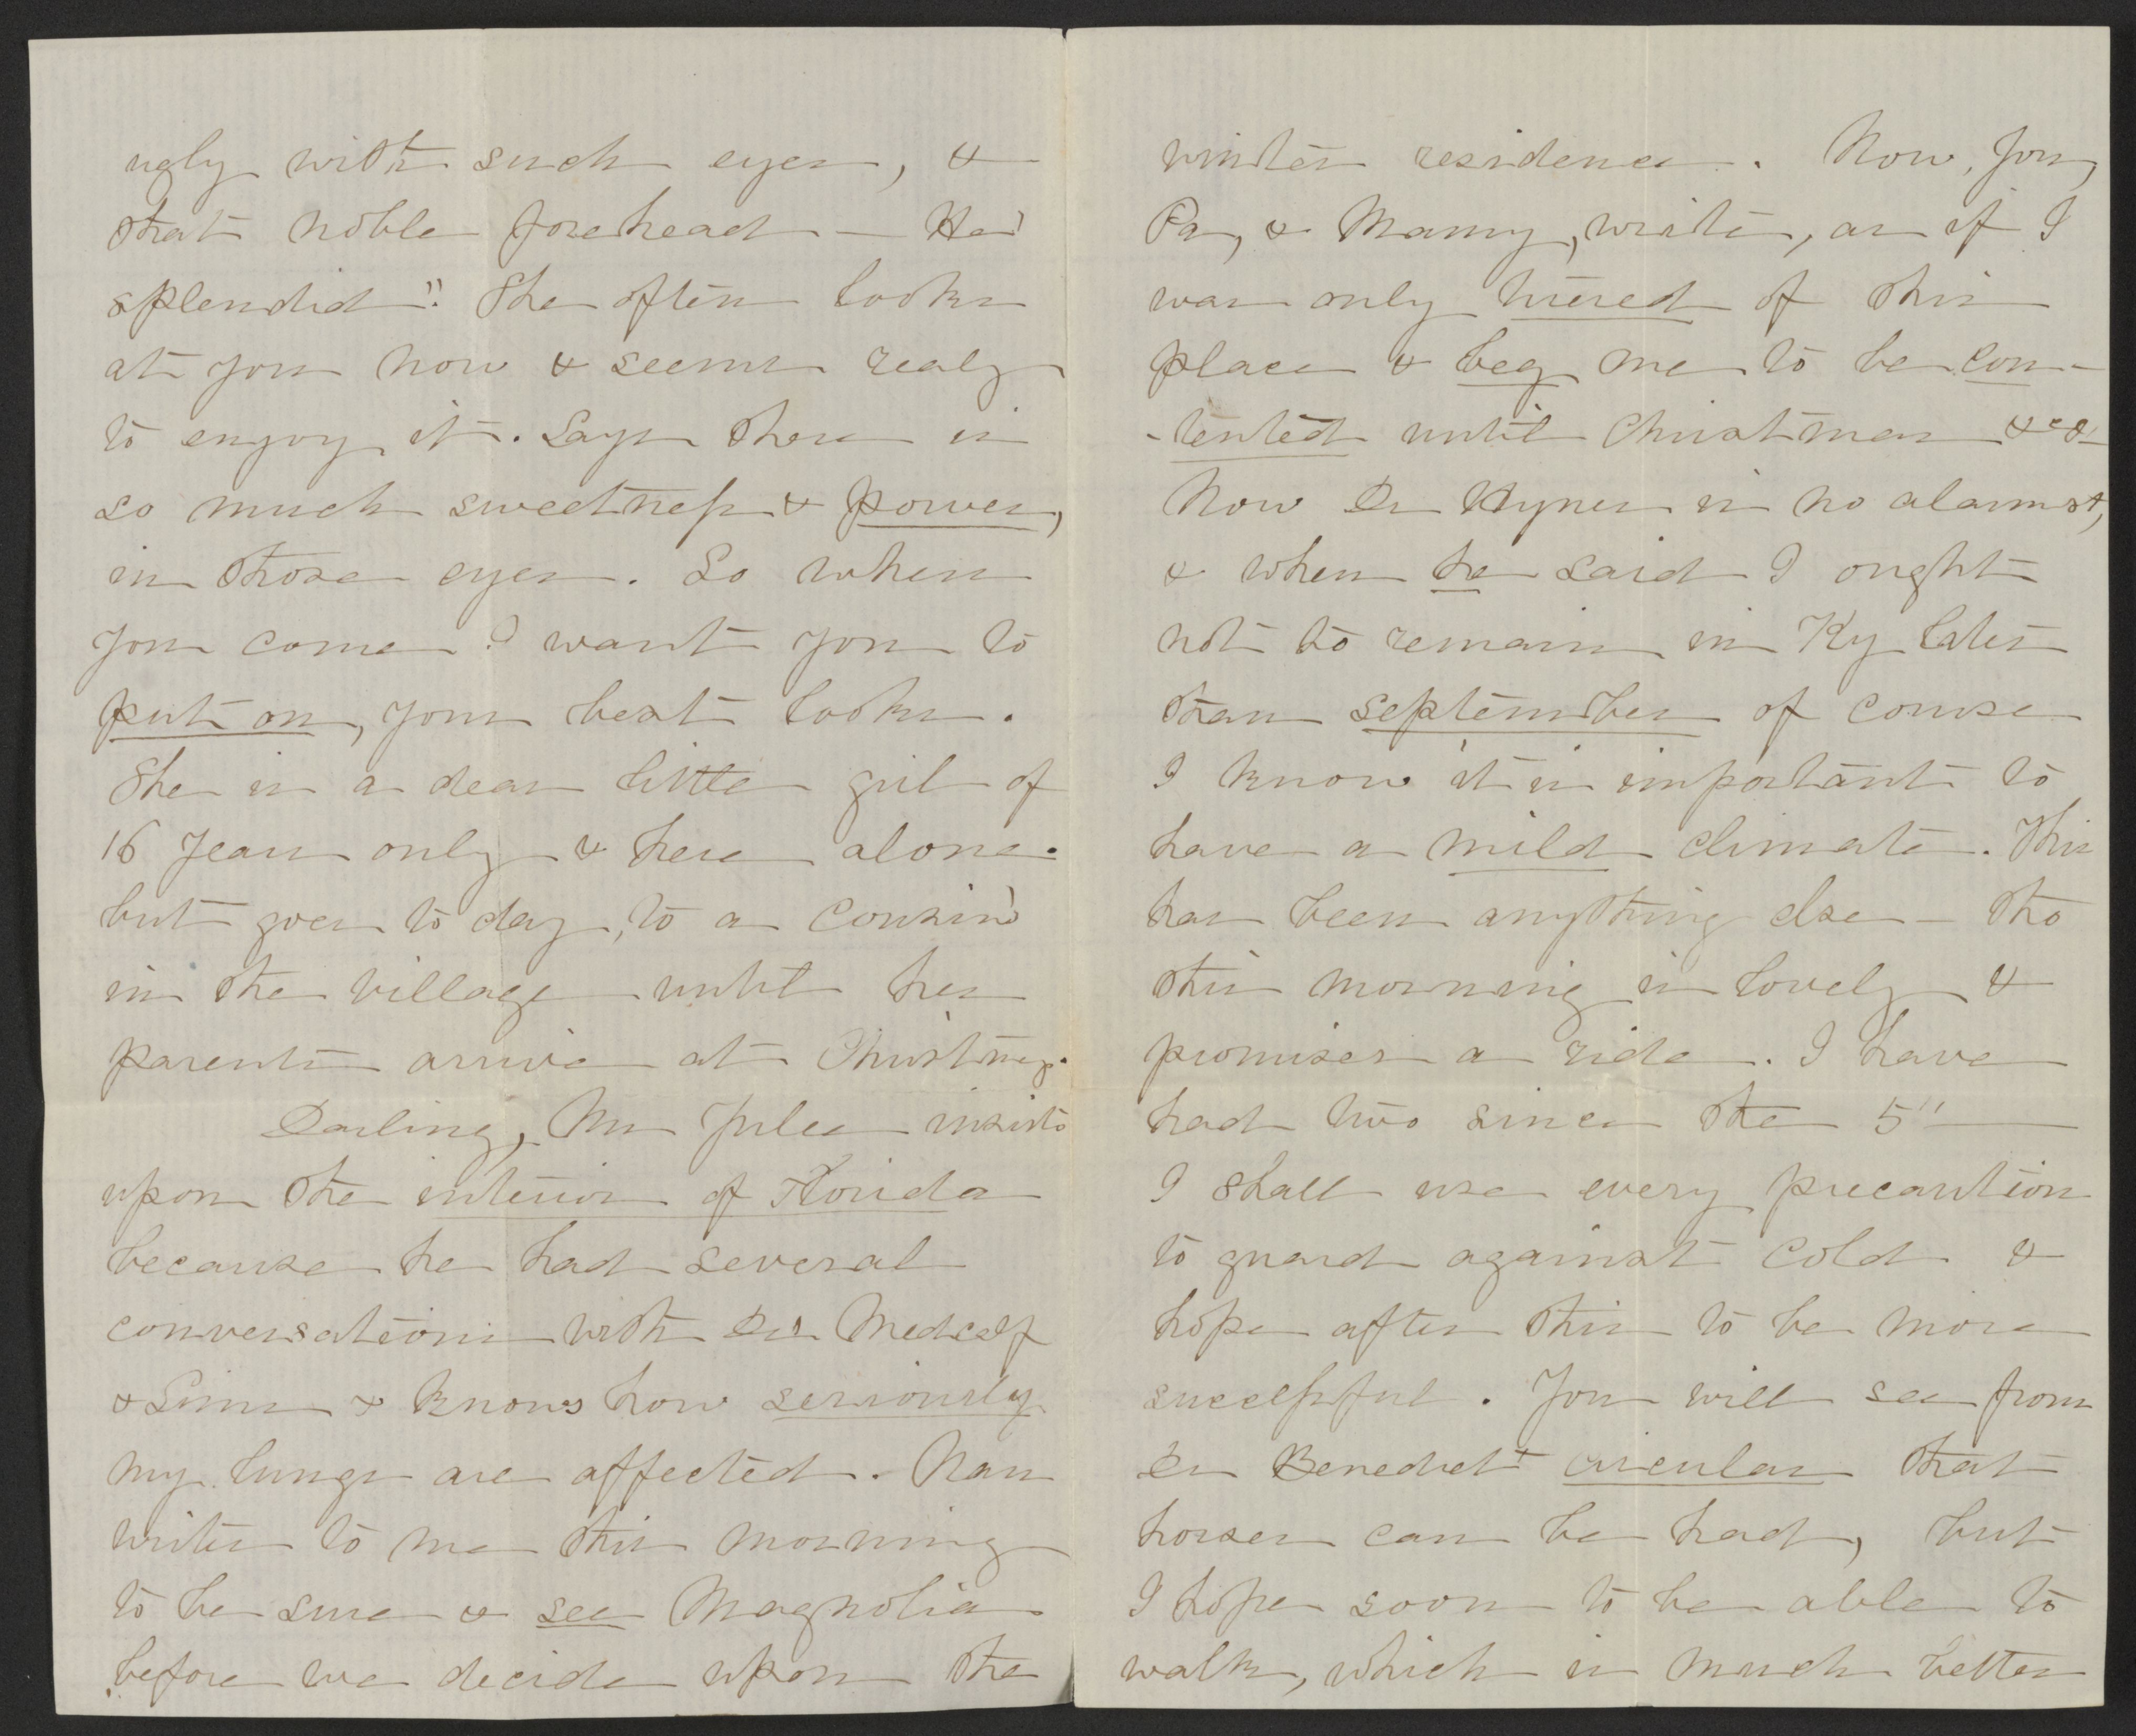 ugly with such eyes, &
that noble forehead — He's
splendid". She often looks
at you now & seems realy
to enjoy it. Says there is
so much sweetness & power,
in those eyes. So when
you come I want you to
put on, your best looks.
She is a dear little girl of
16 years only & here alone.
but goes to day, to a cousin's
in the village until her
parents arrive at Christmas.
Darling, Mr Jules insists
upon the interior of Florida
because he had several
conversations with Drs Medcalf
& Sims & knows how seriously
my lungs are affected. Nan
writes to me this morning
to be sure & see Magnolia
before we decide upon the
winter residence. Now, you,
Pa, & Mamy, write, as if I
was only tired of this
place & beg me to be con-
-tented until Christmas &c &
Now Dr Hynes is no alarmist,
& when he said I ought
not to remain in Ky later
than september of course
I know it is important to
have a mild climate. This
has been anything else - tho
this morning is lovely &
promises a ride. I have
had two since the 5"
I shall use every precaution
to guard against cold &
hope after this to be more
successful. You will see from
Dr Benedict circular that
horses can be had, but
I hope soon to be able to
walk, which is much better